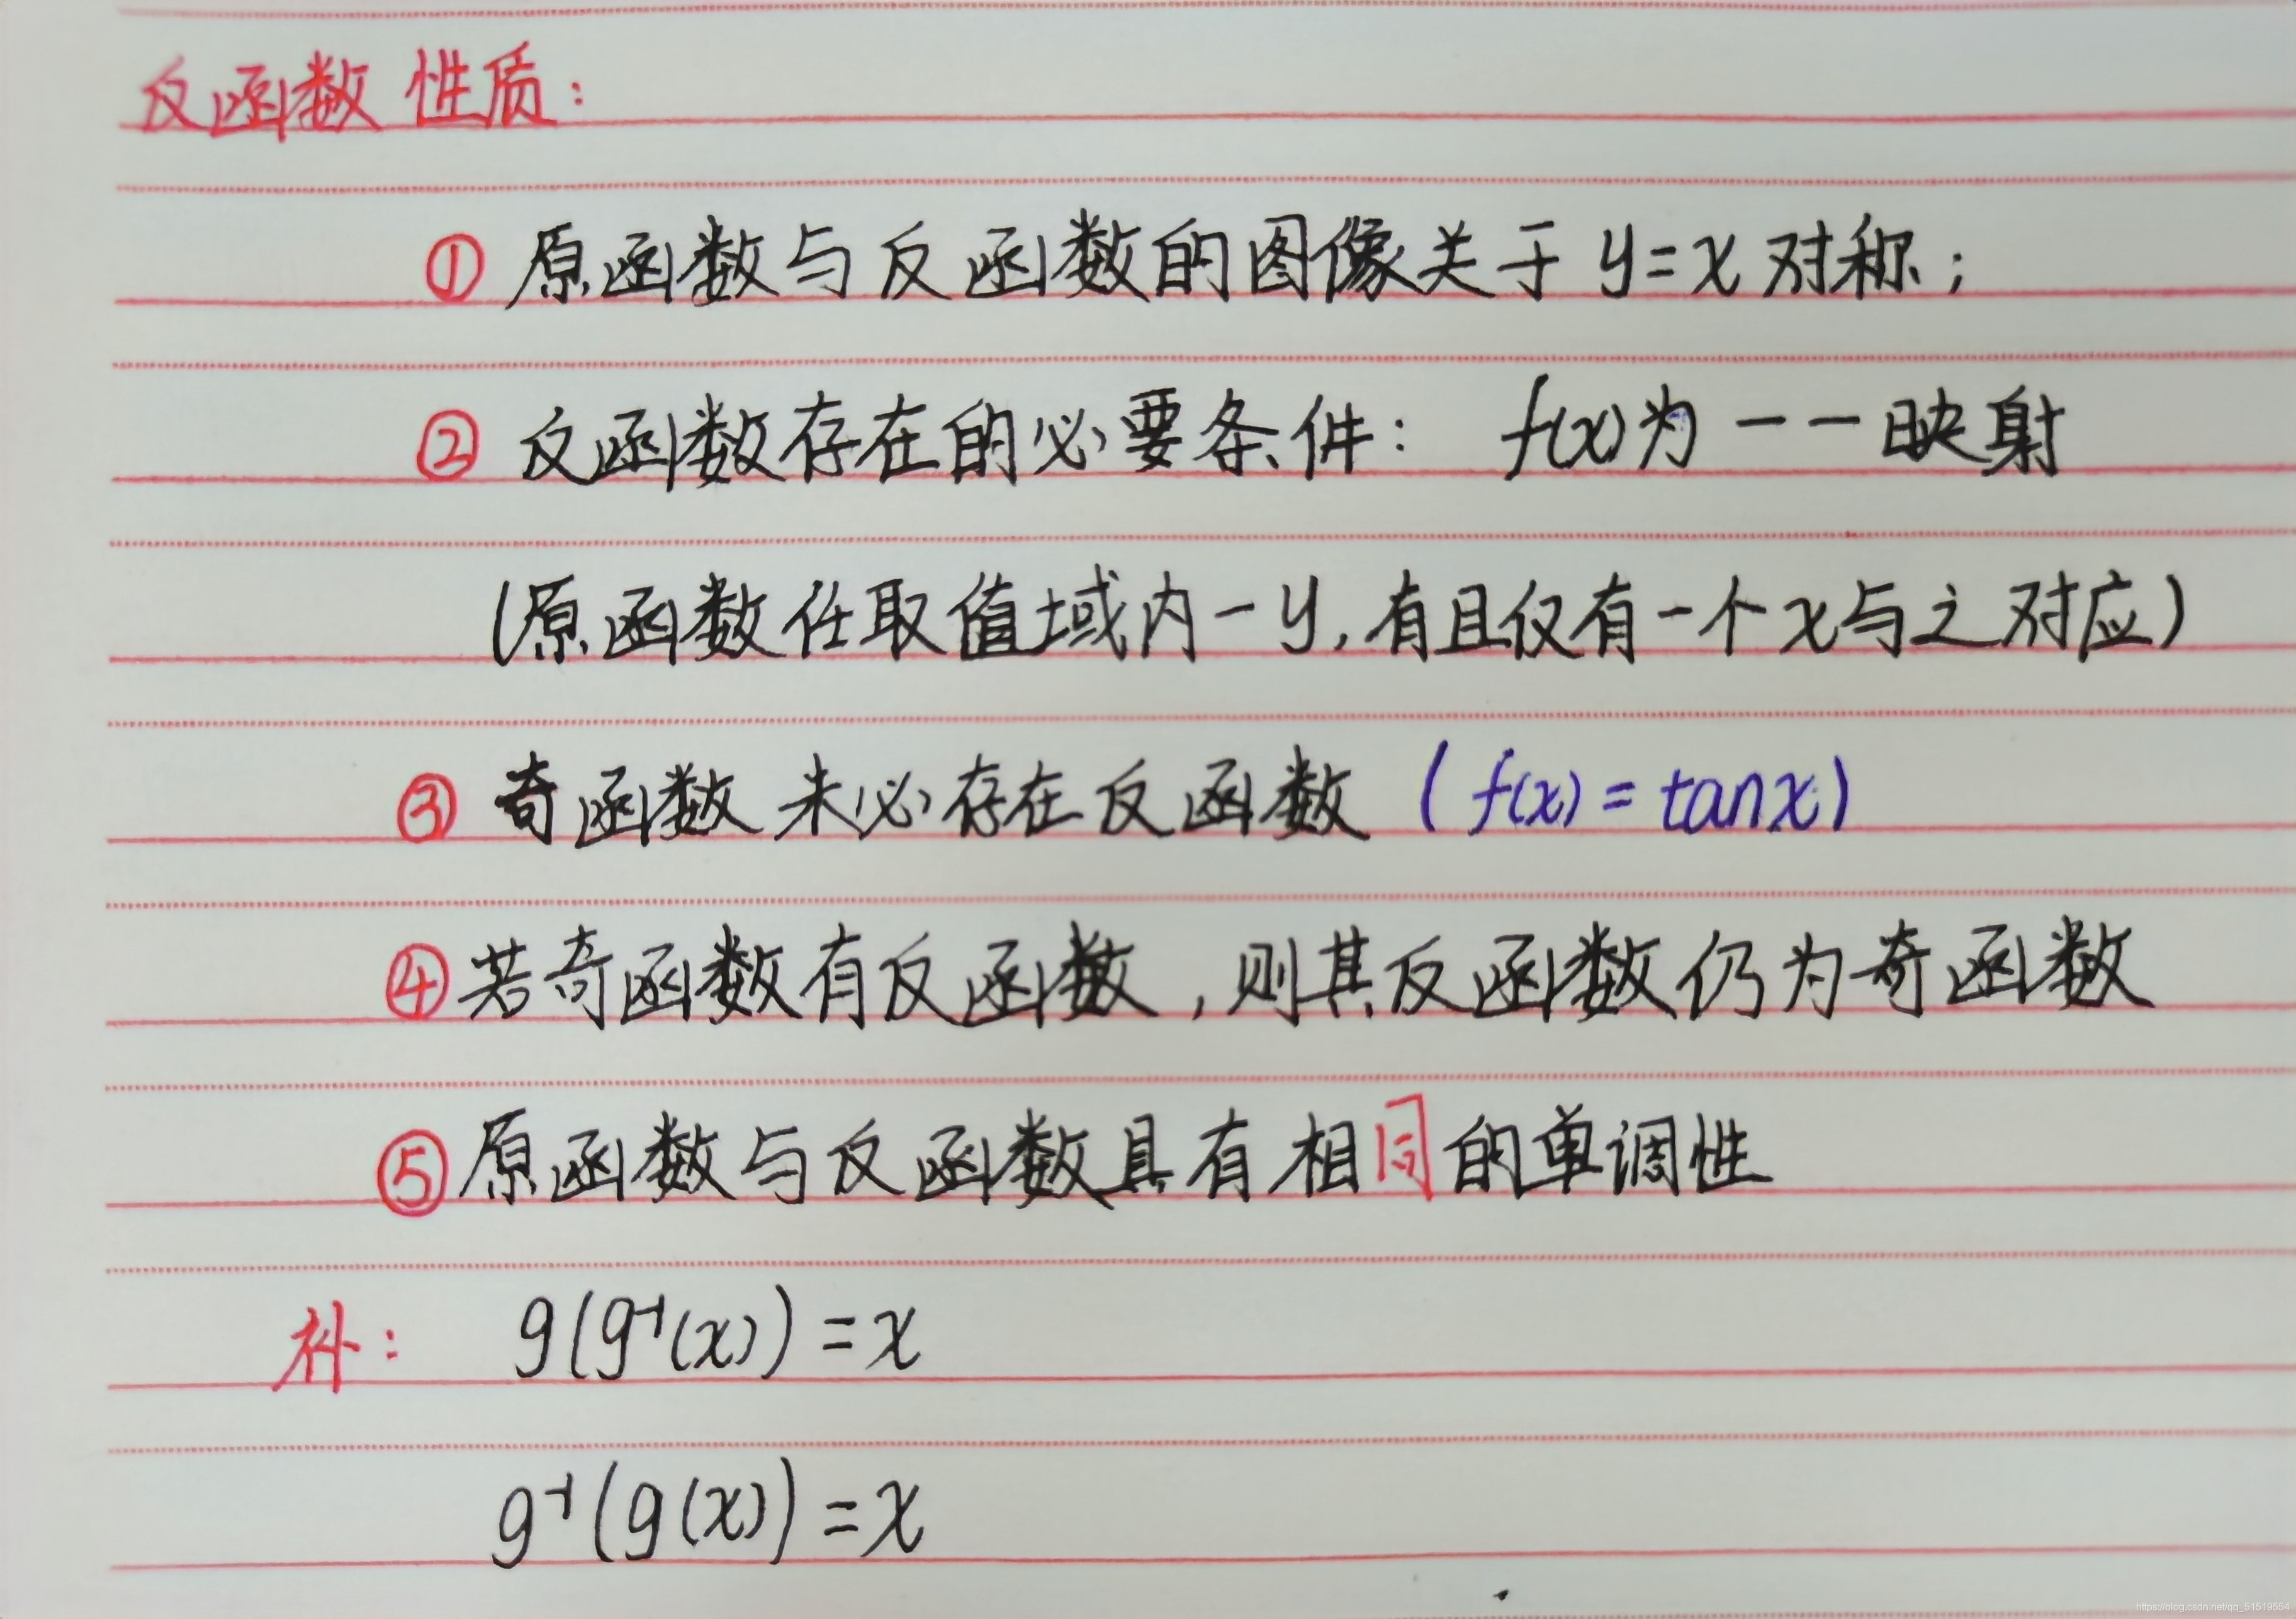 反函数性质：
① 原函数与反函数的图像关于 y=x 对称；
② 反函数存在的必要条件： f(x)为一一映射
(原函数任取值域内一y, 有且仅有一个x与之对应)
③ 奇函数未必存在反函数 (f(x) = tanx)
④ 若奇函数有反函数, 则其反函数仍为奇函数
⑤ 原函数与反函数具有相同的单调性
补： g(g⁻¹(x)) = x
g⁻¹(g(x)) = x
https://blog.csdn.net/qq_51519554